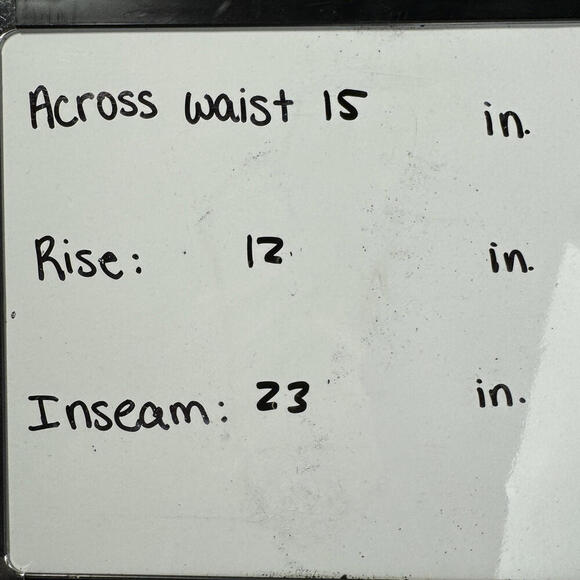 Across waist 15 in.
Rise: 12 in.
Inseam: 23 in.